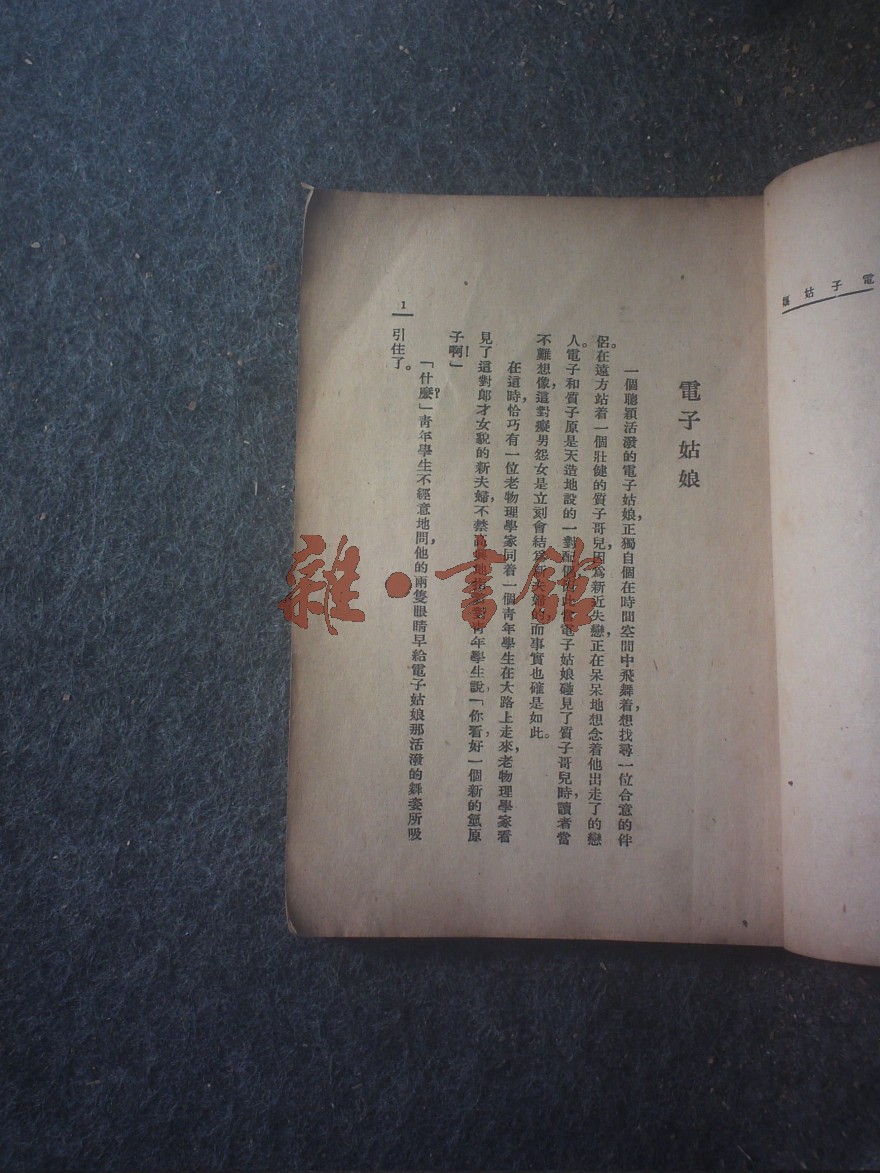 電子姑娘
一個聰穎活潑的電子姑娘,正獨自個在時間空間中飛舞着,想找尋一位合意的伴
侶。在遠方站着一個壯健的質子哥兒,因爲新近失戀,正在呆呆地想念着他出走了的戀
人。電子和質子原是天造地設的一對配偶,因此當電子姑娘碰見了質子哥兒時,讀者當
不難想像,這對癡男怨女是立刻會結爲新夫婦的,而事實也確是如此。
在這時,恰巧有一位老物理學家同着一個青年學生在大路上走來,老物理學家看
見了這對郎才女貌的新夫婦,不禁高興地指着對青年學生說,「你看,好一個新的氫原
子啊!」
「什麼?」青年學生不經意地問,他的兩隻眼睛早給電子姑娘那活潑的舞姿所吸
引住了。
1
電子姑娘
雜·書館